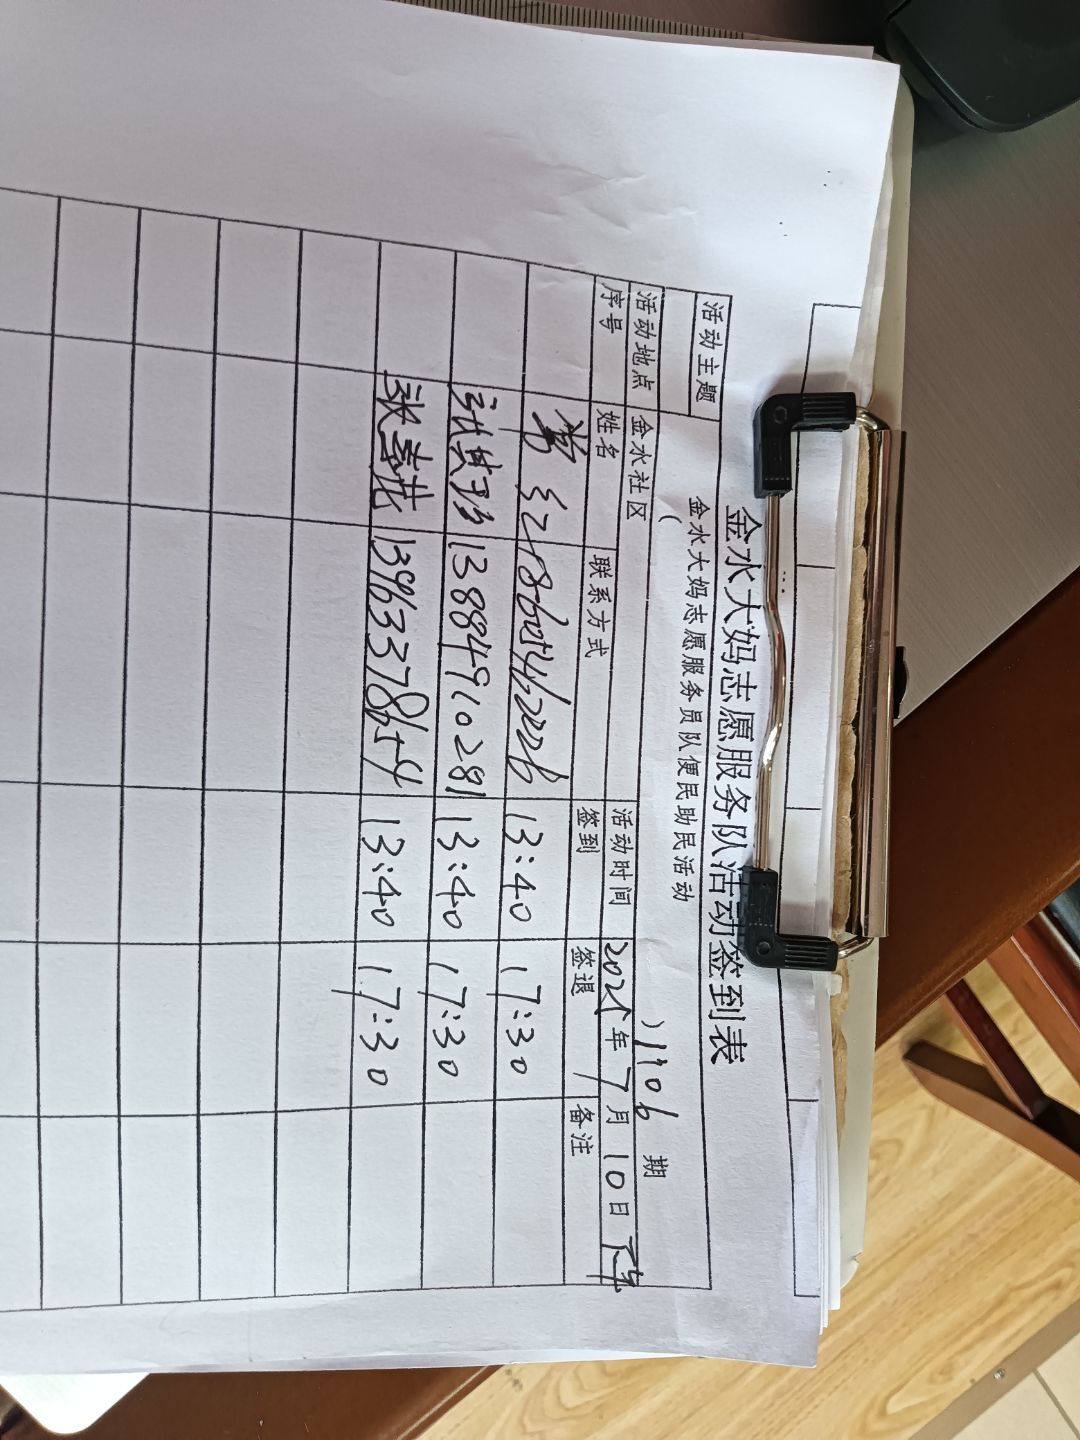 金水大妈志愿服务队活动签到表
活动主题 金水大妈志愿服务员队便民助民活动
( ) 1706 期
活动地点 金水社区 活动时间 2025年 7月 10日 下午
序号 姓名 联系方式 签到 签退 备注
13:40 17:30
13884910281 13:40 17:30
13963378654 13:40 17:30